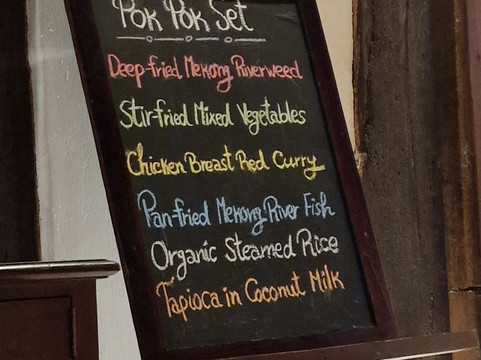 Pok Pok Set
Deep-fried Mekong Riverweed
Stir-fried Mixed Vegetables
Chicken Breast Red Curry
Pan-fried Mekong River Fish
Organic Steamed Rice
Tapioca in Coconut Milk